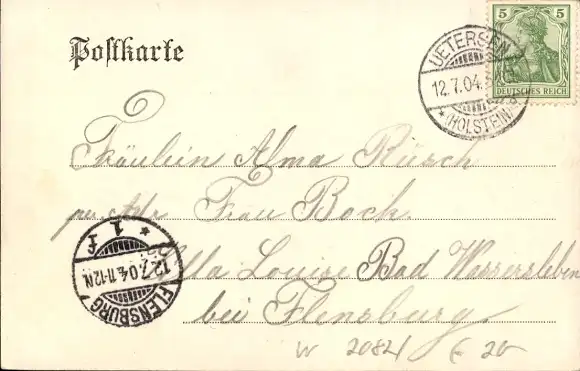 Postkarte
5 5
DEUTSCHES REICH
UETERSEN
12.7.04.
* (HOLSTEIN)
Fräulein Alma Rüsch
per Adr. Frau Boch.
Villa Louise Bad Wassersleben
bei Flensburg.
* 1 f
12.7.04.11-12N.
FLENSBURG
W 2084 € 20